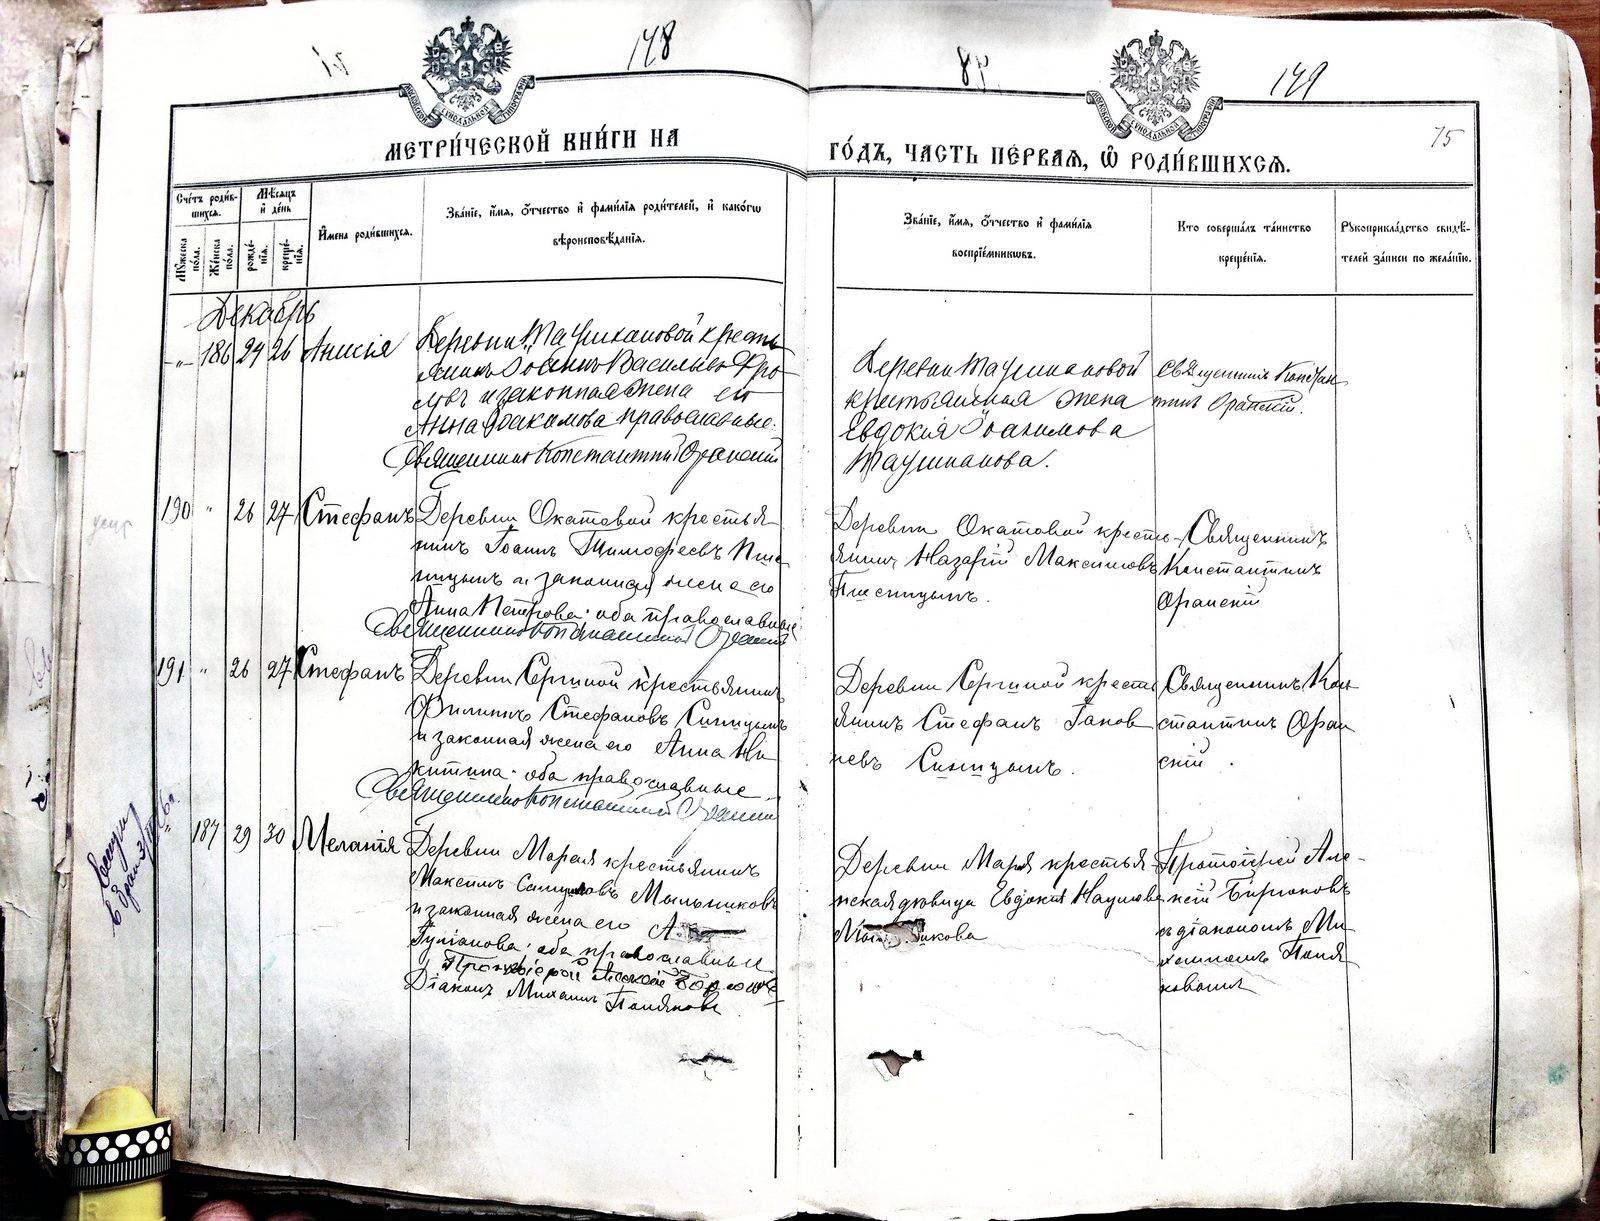 148
149
75
МЕТРИ́ЧЕСКОЙ КНИ́ГИ НА
ГО́ДЪ, ЧАСТЬ ПЕ́РВАЯ, Ѽ РОДИ́ВШИХСЯ.
Сче́тъ роди́в-
шихся.
Му́жеска по́ла.
Же́нска по́ла.
Мѣ́сяцъ
и де́нь
рожде́-
нїя.
креще́-
нїя.
И҆мена роди́вшихся.
Зва́нїе, и҆́мя, ѻ҆́тчество и҆ фами́лїѧ роди́телей, и҆ како́гѡ
вѣроисповѣ́данїя.
Зва́нїе, и҆́мя, ѻ҆́тчество и҆ фами́лїѧ
воспрїе́мникѡвъ.
Кто̀ соверша́лъ та́инство
креще́нїя.
Рукоприкла́дство свидѣ́-
телей за́писи по жела́нїю.
Декабрь
-"- 186 24 26 Анисія
Деревни Таушкановой кресть
янинъ Іоаннъ Васильевъ Фро-
ловъ и законная жена его
Анна Іоакимова православные.
Священникъ Константинъ Оранскій
Деревни Таушкановой
крестьянская жена
Евдокія Іоакимова
Таушканова.
Священникъ Констан
тинъ Оранскій.
190 " 26 27 Стефанъ
Деревни Окатовой крестья
нинъ Іоаннъ Тимофеевъ Пше
ницынъ и законная жена его
Анна Петрова оба православные
Священникъ Константинъ Оранскій
Деревни Окатовой кресть-
янинъ Назарій Максимовъ
Пшеницынъ.
Священникъ
Константинъ
Оранскій
191 " 26 27 Стефанъ
Деревни Сергиной крестьянинъ
Филиппъ Стефановъ Синицынъ
и законная жена его Анна Ни
китина оба православные
Священникъ Константинъ Оранскій
Деревни Сергиной кресть
янинъ Стефанъ
Синицынъ.
Священникъ Кон
стантинъ Оран
скій.
" 187 29 30 Меланія
Деревни Марая крестьянинъ
Максимъ Мыльниковъ
и законная жена его А
оба православные
Протоіерей Алексій
Діаконъ Михаилъ
Деревни Марая крестья
нская дѣвица Евдокія Наумова
Протоіерей Але-
ксій Бирюковъ
съ діакономъ Ми
хаиломъ